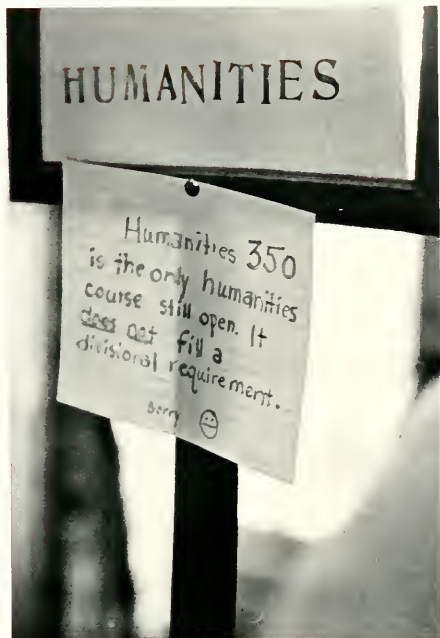 HUMANITIES
Humanities 350
is the only humanities
course still open. It
does not fill a
divisional requirement.
Sorry